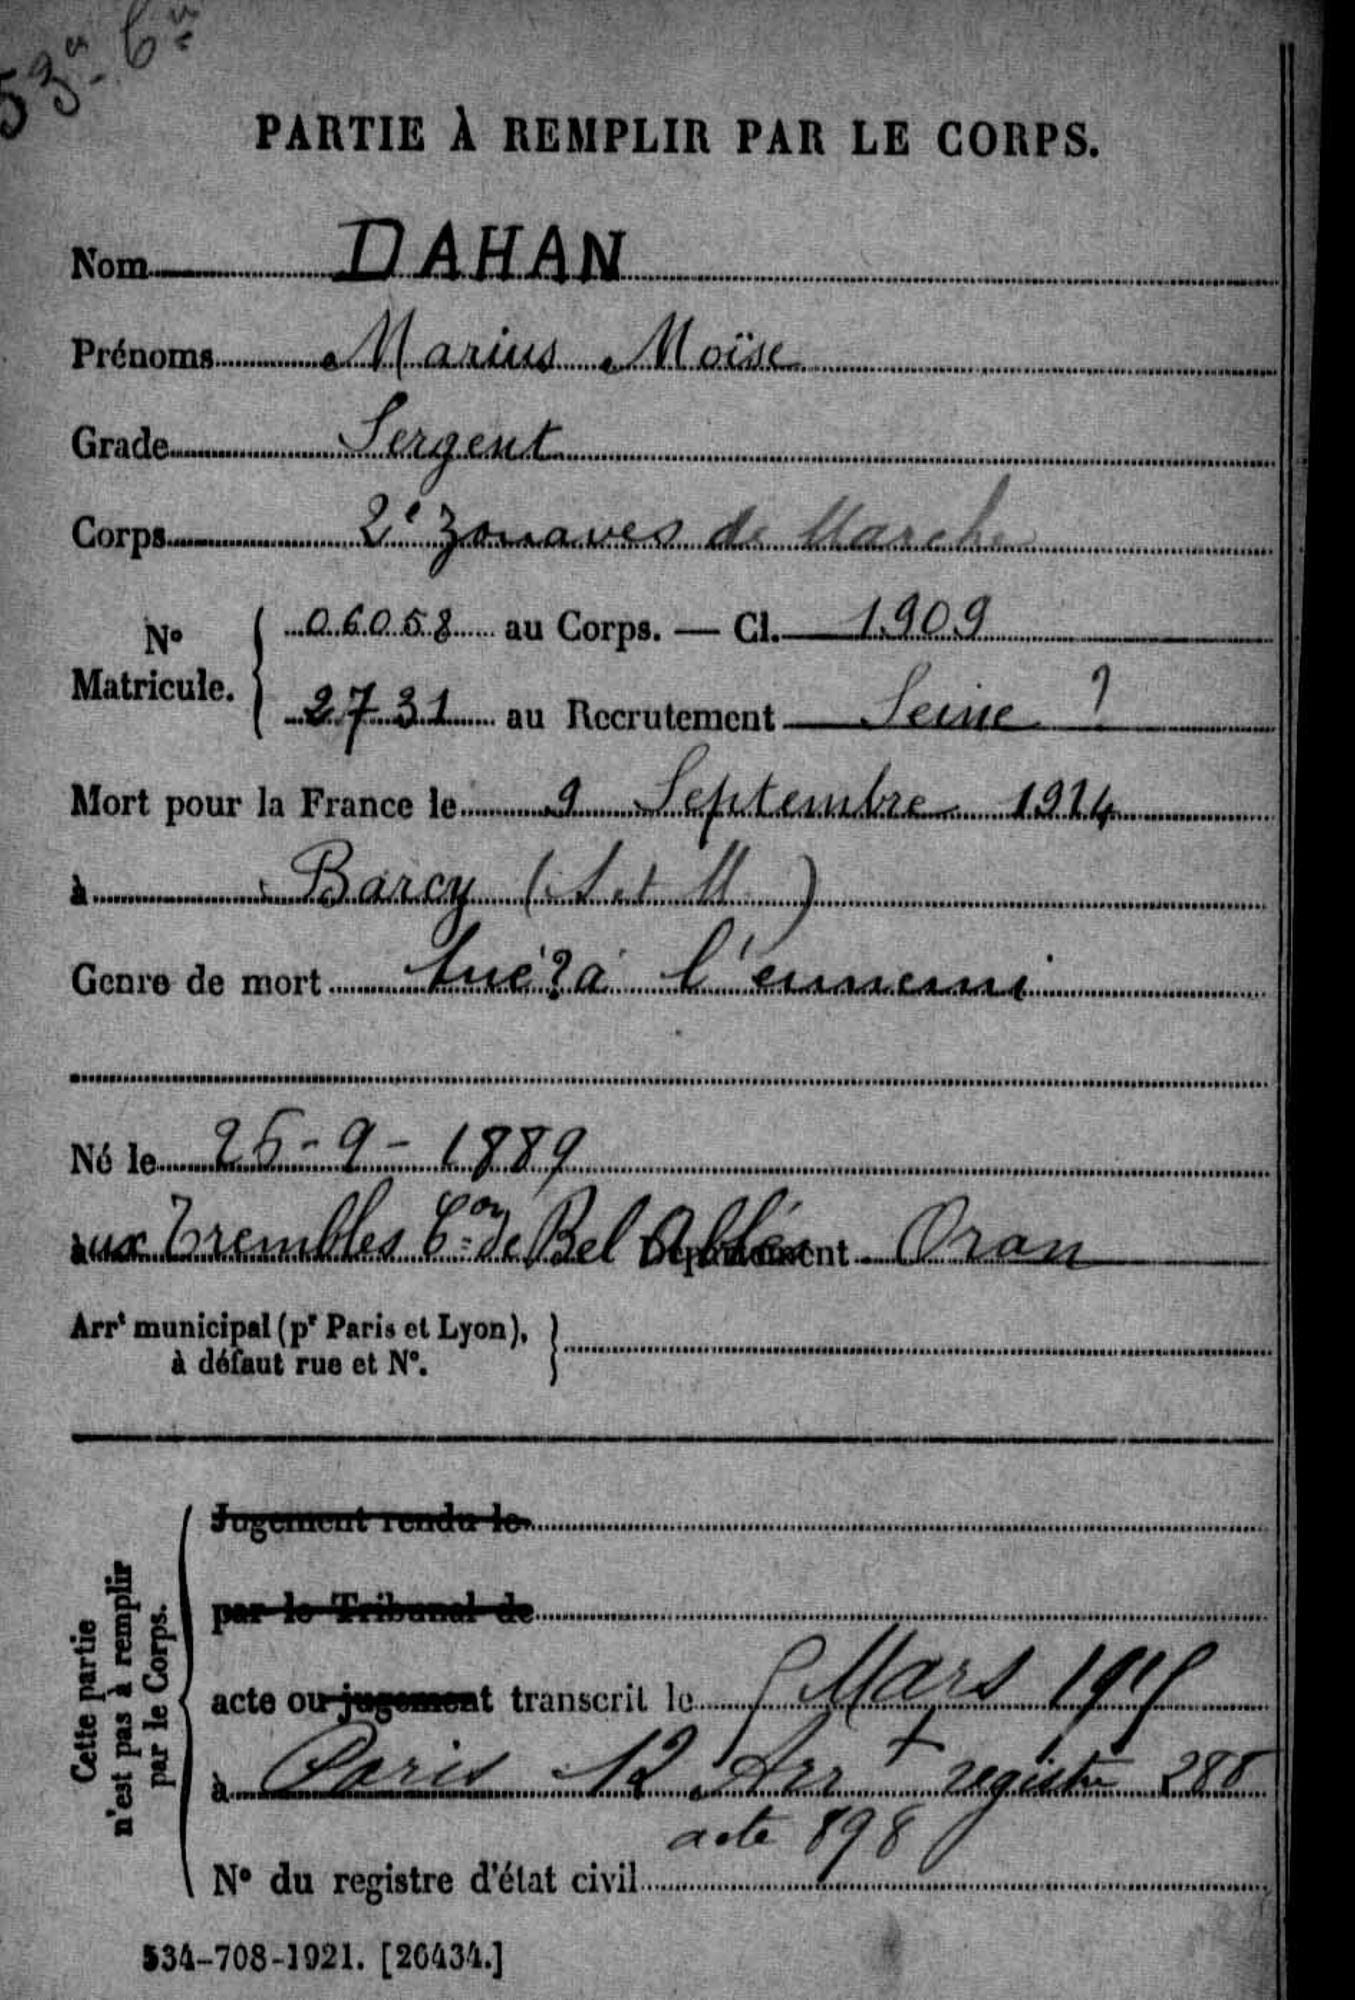 53
PARTIE À REMPLIR PAR LE CORPS.
Nom DAHAN
Prénoms Marius Moïse
Grade Sergent
Corps 2e Zouaves de Marche
No Matricule. 06058 au Corps. — Cl. 1909
2731 au Recrutement Seine ?
Mort pour la France le 9 Septembre 1914
à Barcy (S et M)
Genre de mort tué ? à l'ennemi
Né le 25-9-1889
aux Trembles Con de Bel Abbés Département Oran
Arrt municipal (pr Paris et Lyon),
à défaut rue et No.
Cette partie
n'est pas à remplir
par le Corps.
Jugement rendu le
par le Tribunal de
acte ou jugement transcrit le 5 Mars 1915
à Paris 12 Arrt registre
acte 898
No du registre d'état civil
534-708-1921. [26434.]